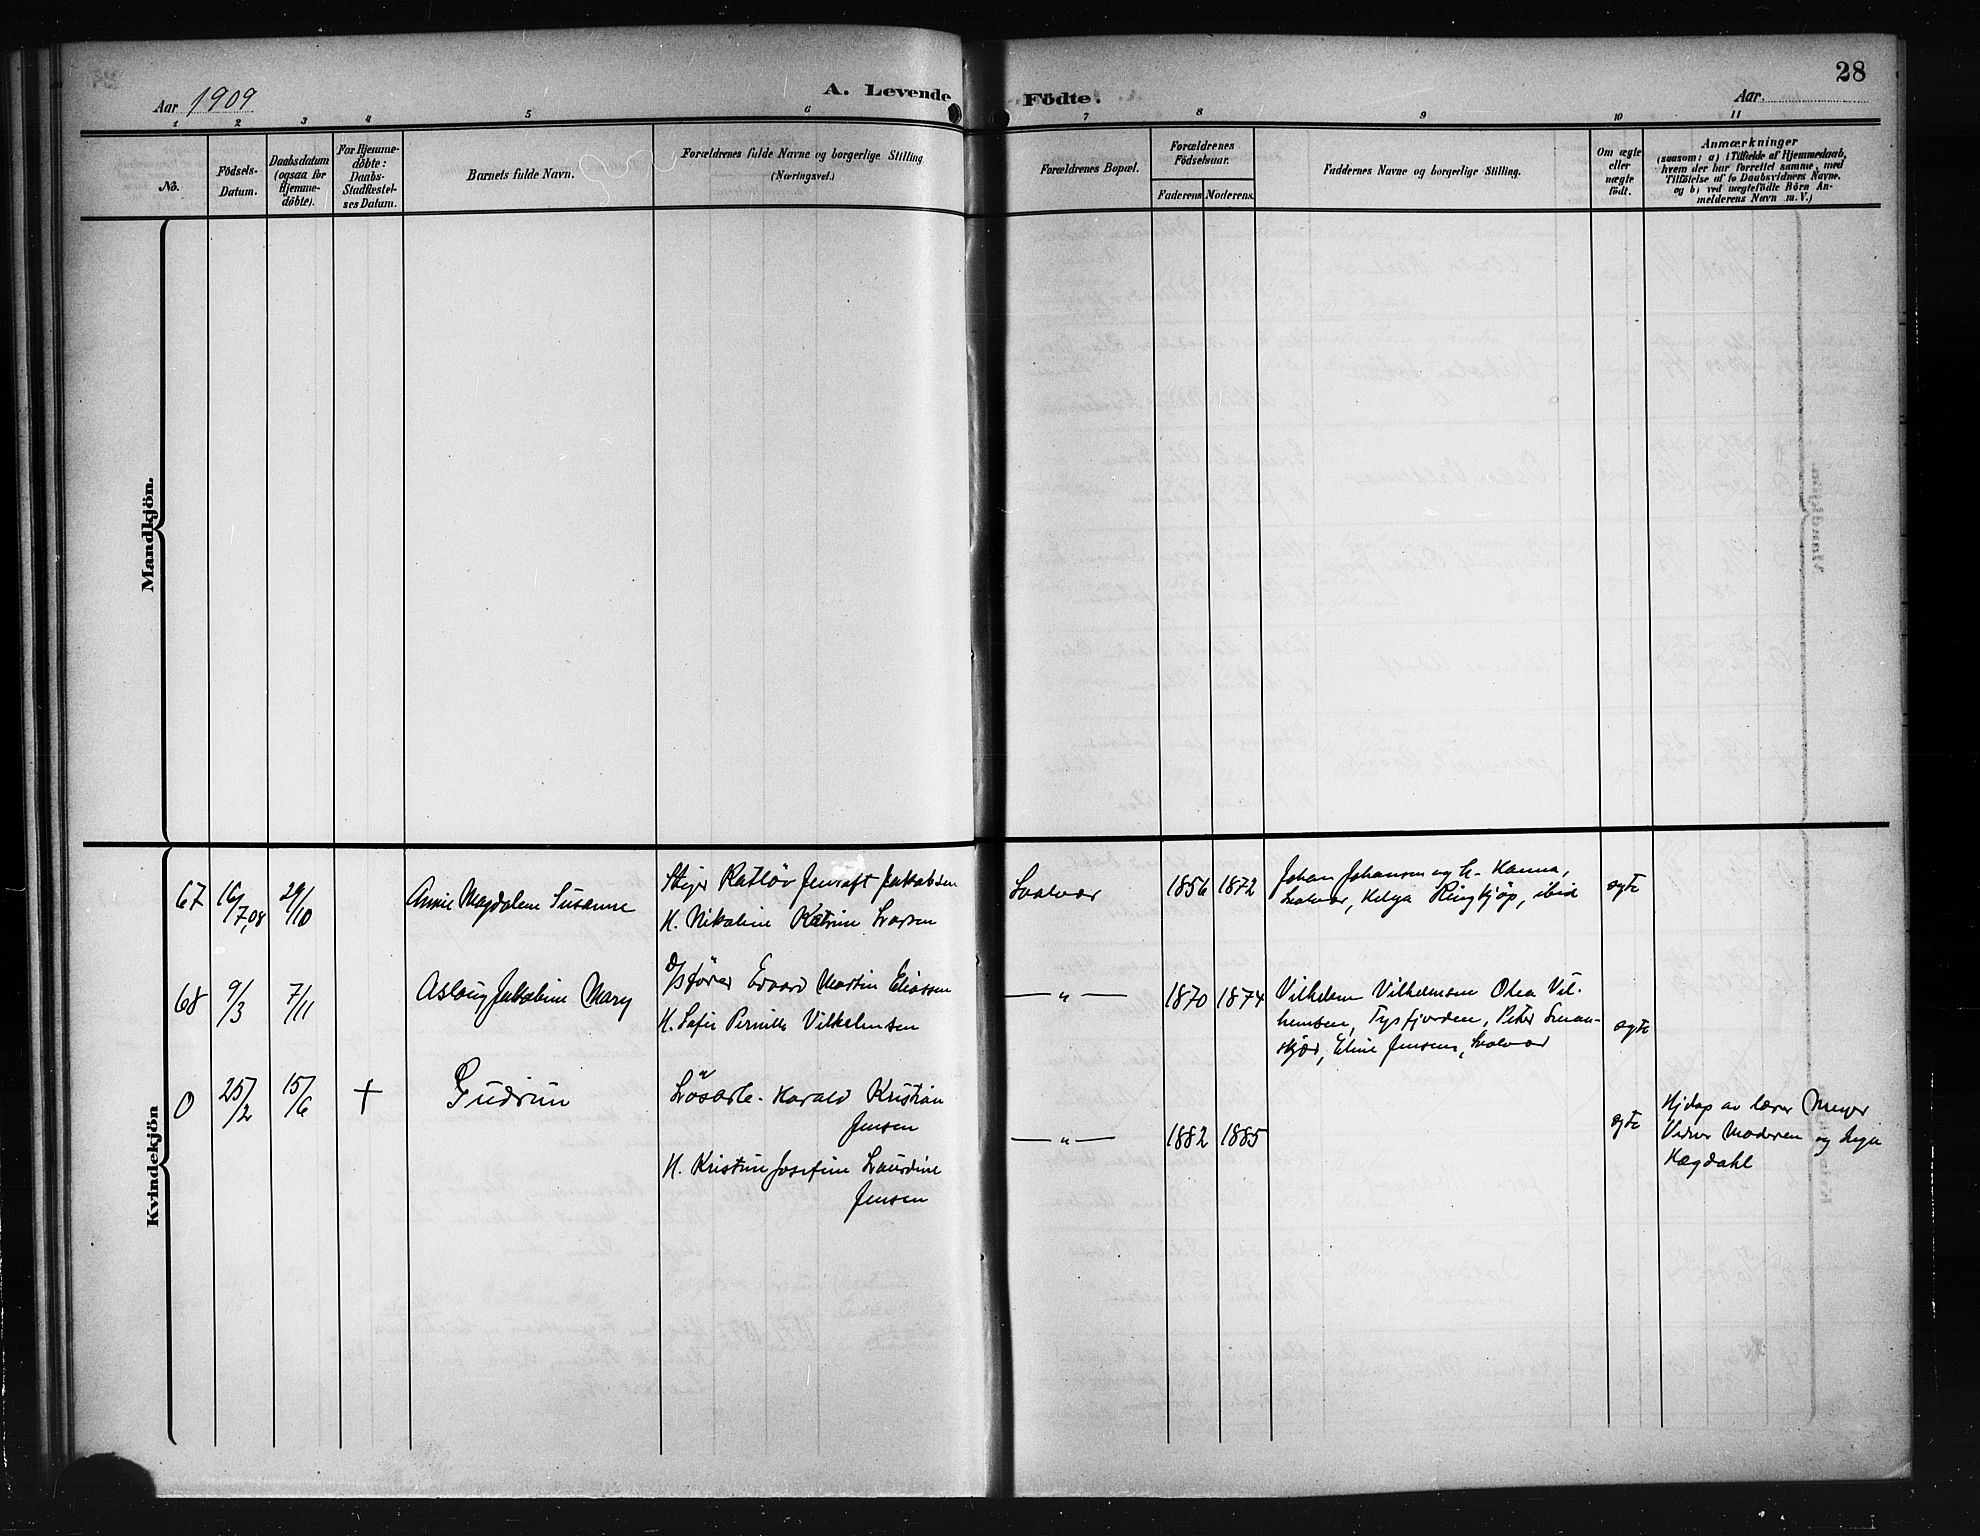 Aar 1909
A. Levende Födte.
28
Aar.
1 2 3 4 5 6 7 8 9 10 11
No.
Födsels-
Datum.
Daabsdatum
(ogsaa for
Hjemme-
döbte).
For Hjemme-
döbte:
Daabs-
Stadfæstel-
ses Datum.
Barnets fulde Navn.
Forældrenes fulde Navne og borgerlige Stilling
(Næringsvei.)
Forældrenes Bopæl.
Forældrenes
Födselsaar.
Faderens. Moderens.
Faddernes Navne og borgerlige Stilling.
Om ægte
eller
uægte
födt.
Anmærkninger
(saasom: a) i Tilfælde af Hjemmedaab,
hvem der har forrettet samme, med
Tilföielse af to Daabsvidners Navne,
og b) ved uægtefödte Börn An-
melderens Navn m. V.)
Mandkjön.
Kvindekjön
67 16/7,08 29/10 Annie Magdalene Susanne
Jakobsen
H. Nikoline Katrine Larsen
Svolvær 1856 1872
Johan Johansen og H. Hanna,
Svolvær, Helga Ringkjøp, ibid
ægte
68 9/3 7/11 Aslaug Jakobine Mary
D/sfører Edvard Martin Eliassen
H. Sofie Pernille Vilhelmsen
— " — 1870 1874
Vilhelm Vilhelmsen Olea Vil-
helmsen, Tysfjorden, Peter
skjær, Eline Jensen, Svolvær
ægte
0 25/2 15/6 + Gudrun
Harald Kristian
Jensen
H. Kristine Josefine Laurdine
Jensen
— " — 1882 1885
ægte
Hjdøp av lærer Meyer
Vidner Moderen og
Hægdahl